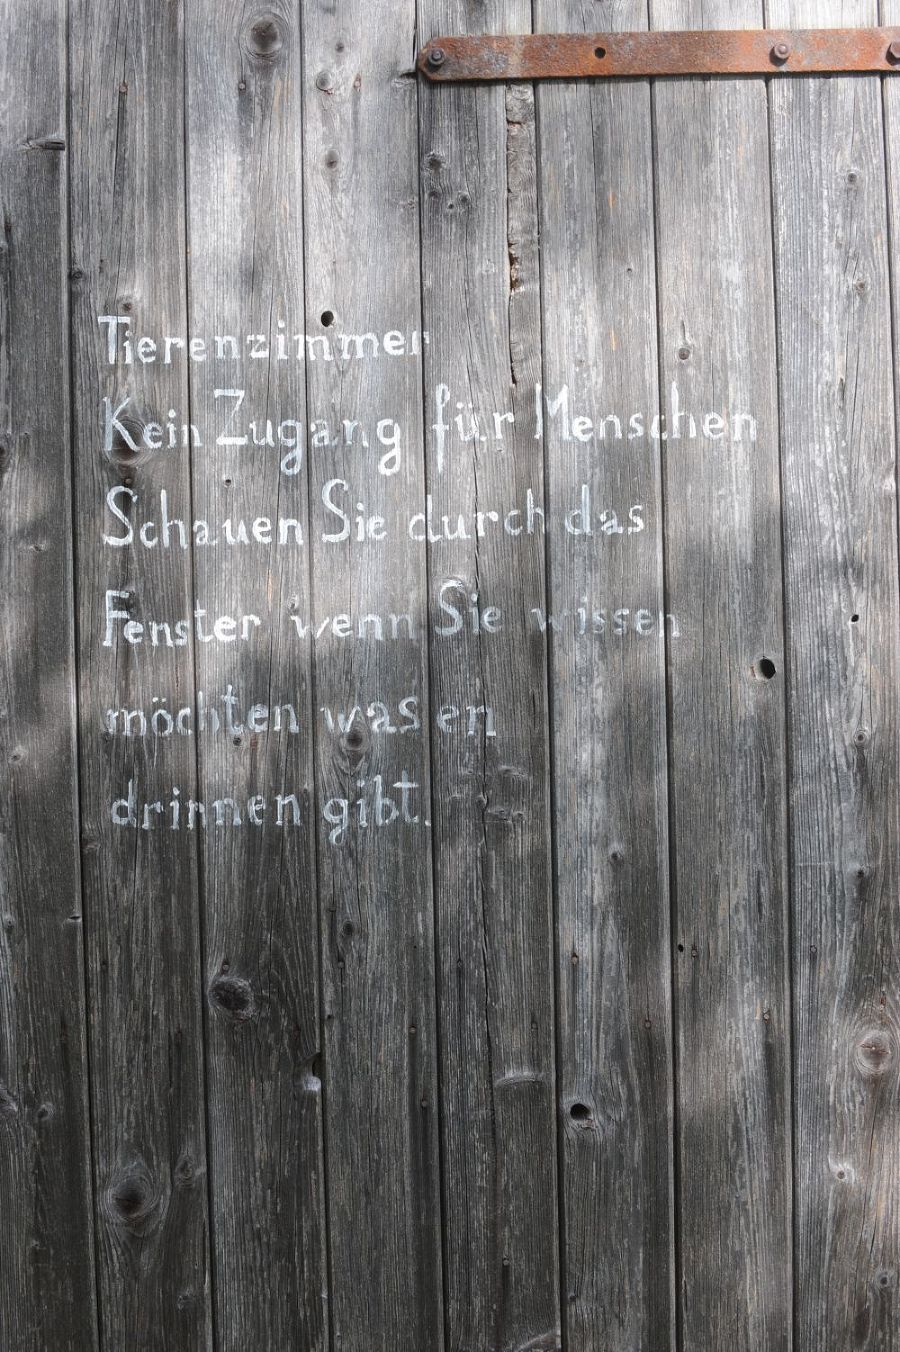 Tierenzimmer
Kein Zugang für Menschen
Schauen Sie durch das
Fenster wenn Sie wissen
möchten was en
drinnen gibt.